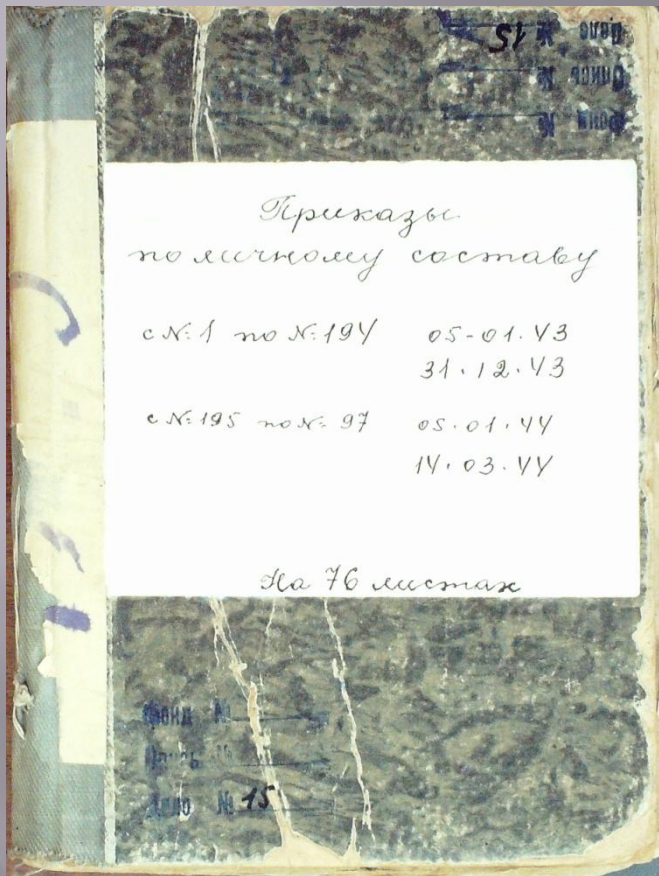 Дело № 15
Опись №
Фонд №
Приказы
по личному составу
с №1 по №194 05-01.43
31.12.43
с №195 по № 97 05.01.44
14.03.44
На 76 листах
Фонд №
Опись №
Дело № 15